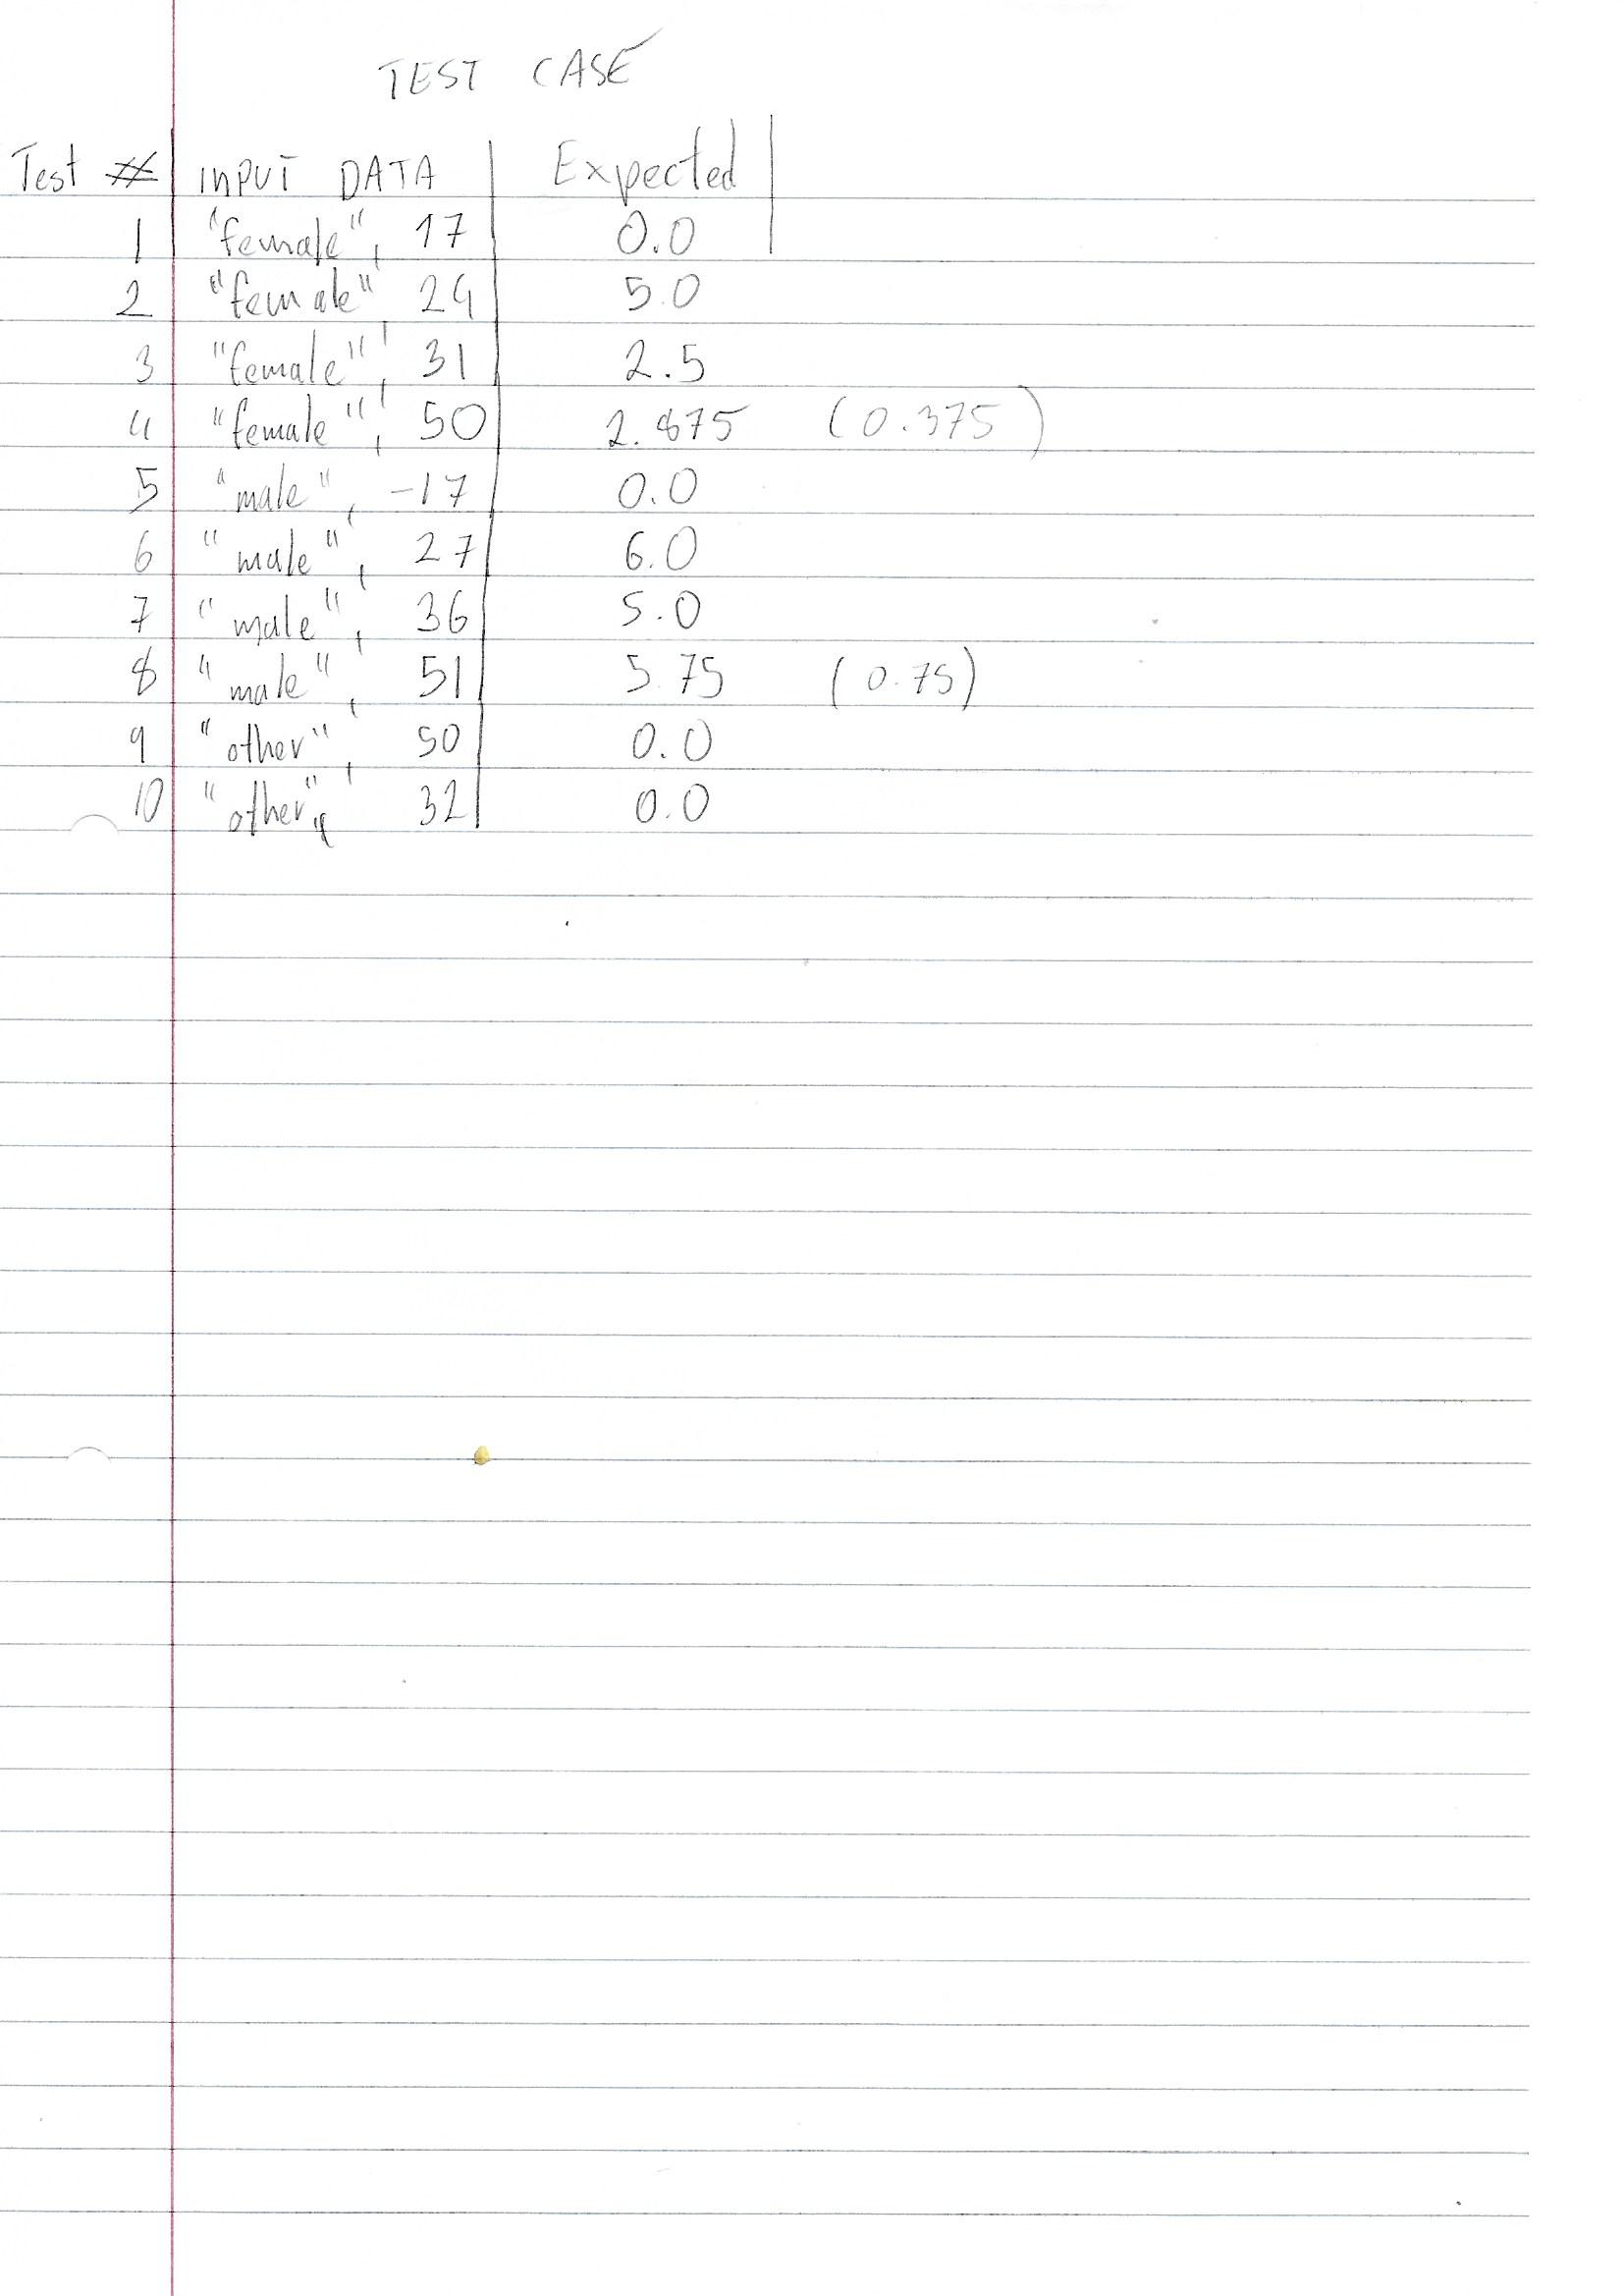 TEST CASE
Test # INPUT DATA Expected
1 "female", 17 0.0
2 "female" 24 5.0
3 "female", 31 2.5
4 "female", 50 2.875 (0.375)
5 "male", -17 0.0
6 "male", 27 6.0
7 "male", 36 5.0
8 "male", 51 5.75 (0.75)
9 "other", 50 0.0
10 "other", 32 0.0